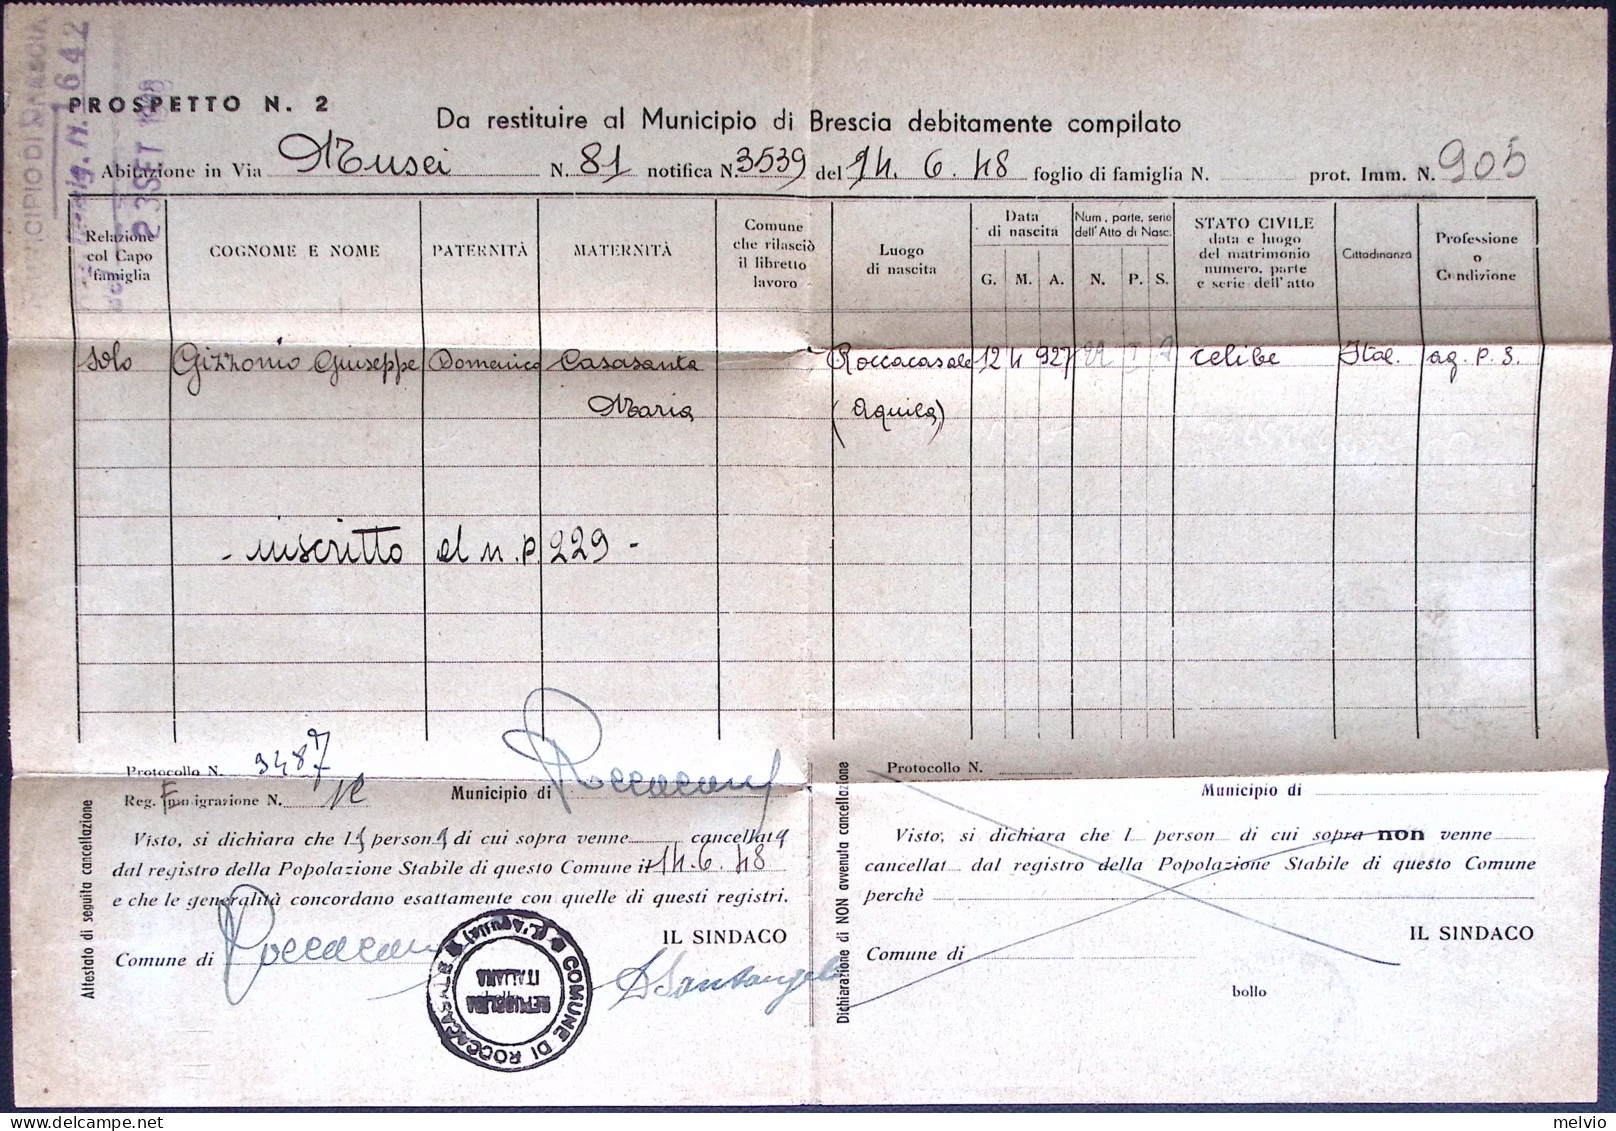 MUNICIPIO DI BRESCIA
1642
23 SET 1948
PROSPETTO N. 2
Da restituire al Municipio di Brescia debitamente compilato
Abitazione in Via Musei N. 81 notifica N. 3539 del 14. 6. 48 foglio di famiglia N. prot. Imm. N. 905
Relazione col Capo famiglia
COGNOME E NOME
PATERNITÀ
MATERNITÀ
Comune che rilasciò il libretto lavoro
Luogo di nascita
Data di nascita
G. M. A.
Num, parte, serie dell'Atto di Nasc.
N. P. S.
STATO CIVILE data e luogo del matrimonio numero, parte e serie dell'atto
Cittadinanza
Professione o Condizione
solo Gizzonio Giuseppe Domenico Casasanta Roccacasale 12 4 927 I A celibe Ital. ag. P. S.
Maria (Aquila)
- inscritto al n. p. 229 -
Protocollo N. 3487
Reg. Emmigrazione N.
Municipio di
Attestato di seguita cancellazione
Visto, si dichiara che l person di cui sopra venne cancellata
dal registro della Popolazione Stabile di questo Comune il 14. 6. 48
e che le generalità concordano esattamente con quelle di questi registri.
Comune di
IL SINDACO
Santangelo
COMUNE DI ROCCACASALE (L'Aquila)
REPUBBLICA ITALIANA
Protocollo N.
Municipio di
Dichiarazione di NON avvenuta cancellazione
Visto, si dichiara che l person di cui sopra non venne
cancellat dal registro della Popolazione Stabile di questo Comune
perchè
Comune di
IL SINDACO
bollo
melvio